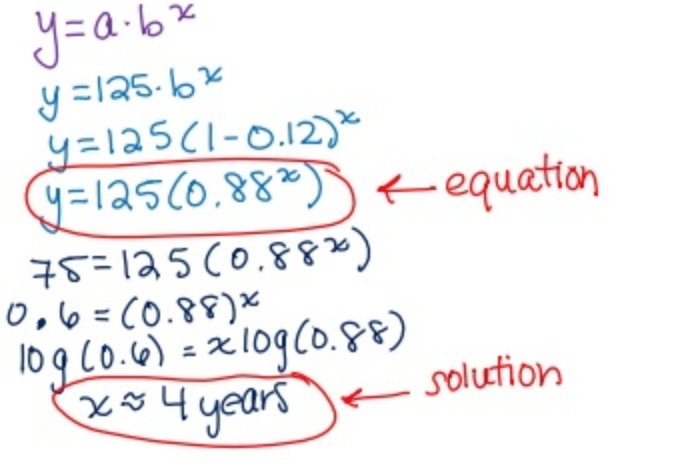 y=a·bˣ
y=125·bˣ
y=125(1-0.12)ˣ
y=125(0.88ˣ) ← equation
75=125(0.88ˣ)
0.6=(0.88)ˣ
log(0.6)=xlog(0.88)
x≈4 years ← solution